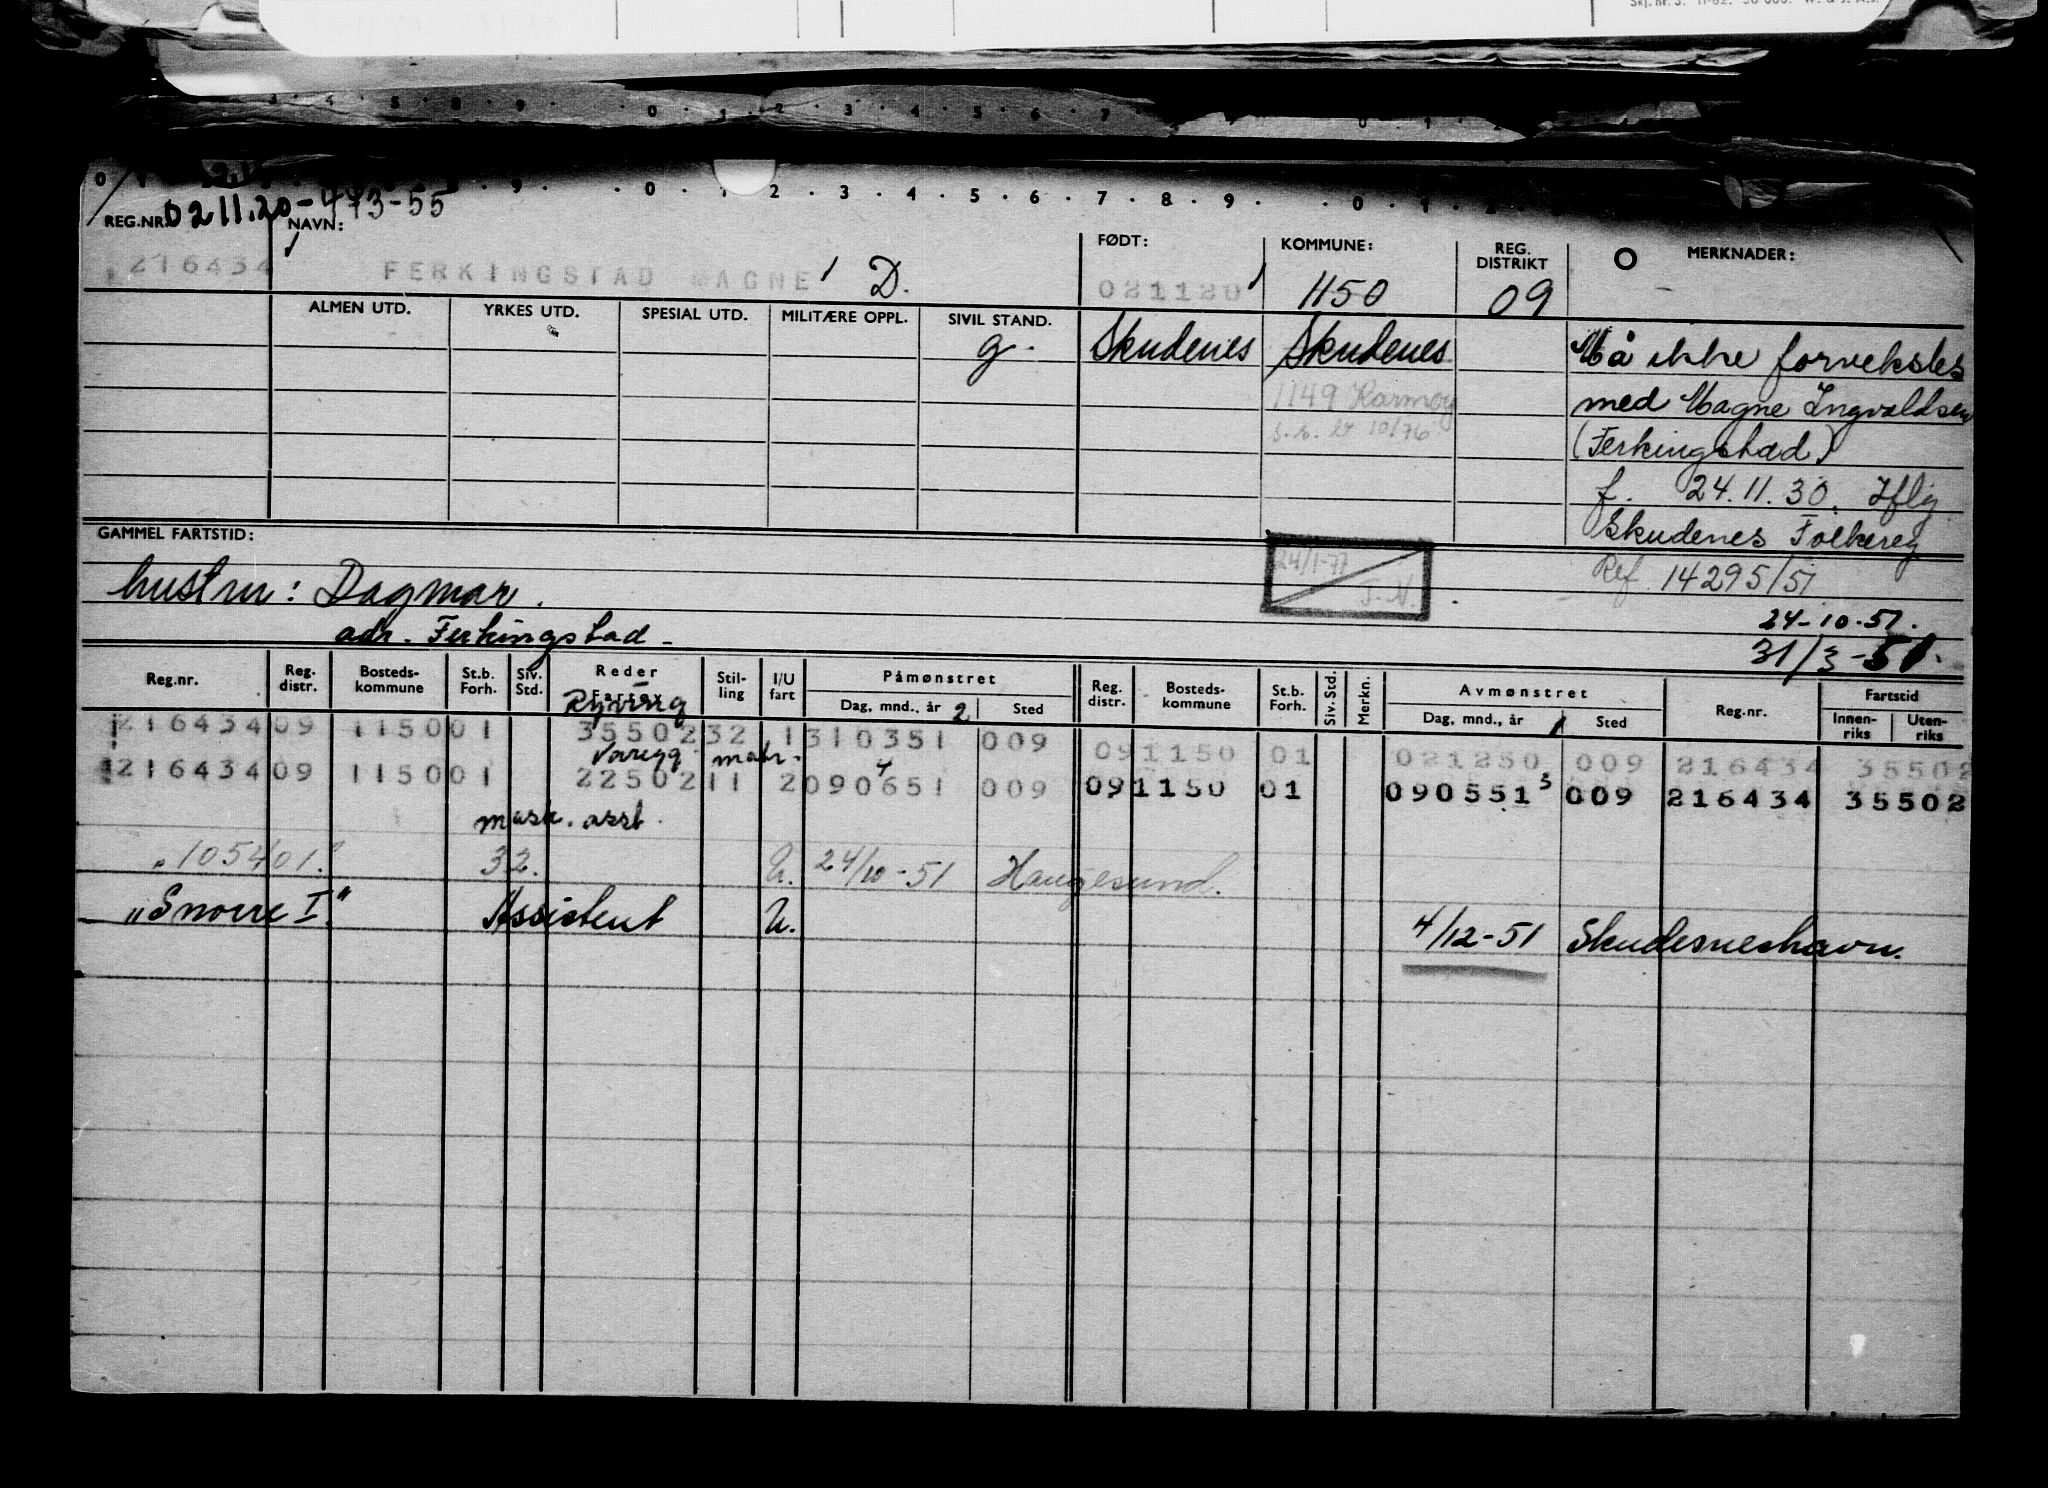 Skj. nr. 3. 11-62. 50 000. W. & J. A.S.
3 · 4 · 5 · 8 · 9 · 0 · 1 · 2 · 3 · 4 · 5 · 6 · 7 · 0 · 1 · 2
0 9 · 0 · 1 · 2 · 3 · 4 · 5 · 6 · 7 · 8 · 9 · 0 · 1
REG.NR. 021120-473-55
NAVN:
FØDT:
KOMMUNE:
REG. DISTRIKT
MERKNADER:
216434 FERKINGSTAD MAGNE D. 021120 1150 09
ALMEN UTD. YRKES UTD. SPESIAL UTD. MILITÆRE OPPL. SIVIL STAND.
g. Skudenes Skudenes
1149 Karmøy
10/76
Må ikke forveksles
med Magne Ingvaldsen
(Ferkingstad)
f. 24.11.30. Iflg
Skudenes Folkereg
Ref 14295/51
24-10-51.
31/3-51.
24/1-77
GAMMEL FARTSTID:
hustru: Dagmar.
adr. Ferkingstad
Reg.nr. Reg. distr. Bosteds-kommune St.b. Forh. Siv. Std. Reder Fartøy Stil-ling I/U fart Påmønstret Dag, mnd., år Sted Reg. distr. Bosteds-kommune St.b. Forh. Siv. Std. Merkn. Avmønstret Dag, mnd., år Sted Reg.nr. Fartstid Innen-riks Uten-riks
216434 09 1150 01 35502 32 1 310351 009 091150 01 021250 009 216434 35502
Varegg matr.
216434 09 1150 01 22502 11 2 090651 009 091150 01 090551 009 216434 35502
mask. asst.
105401 32. U. 24/10-51 Haugesund.
"Snorre I." Assistent U. 4/12-51 Skudesneshavn.